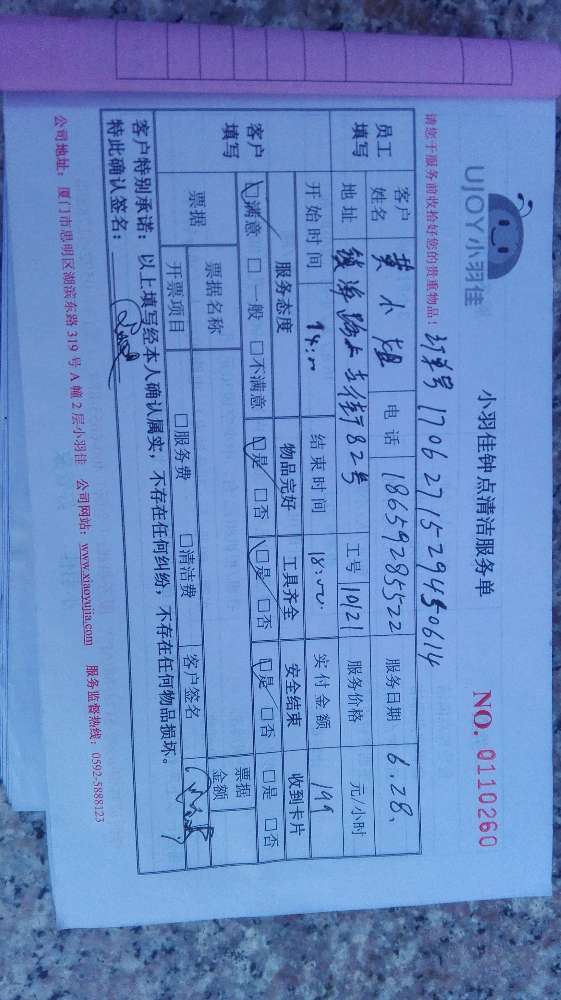 UJOY小羽佳
小羽佳钟点清洁服务单
NO. 0110260
请您于服务前收拾好您的贵重物品！ 订单号 1706271529450614
员工填写 客户姓名 黄小姐 电话 18659285522 服务日期 6.28、
地址 82号 工号 1021 服务价格 元/小时
开始时间 14:00 结束时间 18:00 实付金额 199
客户填写 服务态度 物品完好 工具齐全 安全结束 收到卡片
☑满意 □一般 □不满意 ☑是 □否 ☑是 □否 ☑是 □否 □是 □否
票据 票据名称 票据金额
开票项目 □服务费 □清洁费 客户签名
客户特别承诺：以上填写经本人确认属实，不存在任何纠纷，不存在任何物品损坏。
特此确认签名：
公司地址：厦门市思明区湖滨东路319号A幢2层小羽佳 公司网站：www.xiaoyujia.com 服务监督热线：0592-5888123